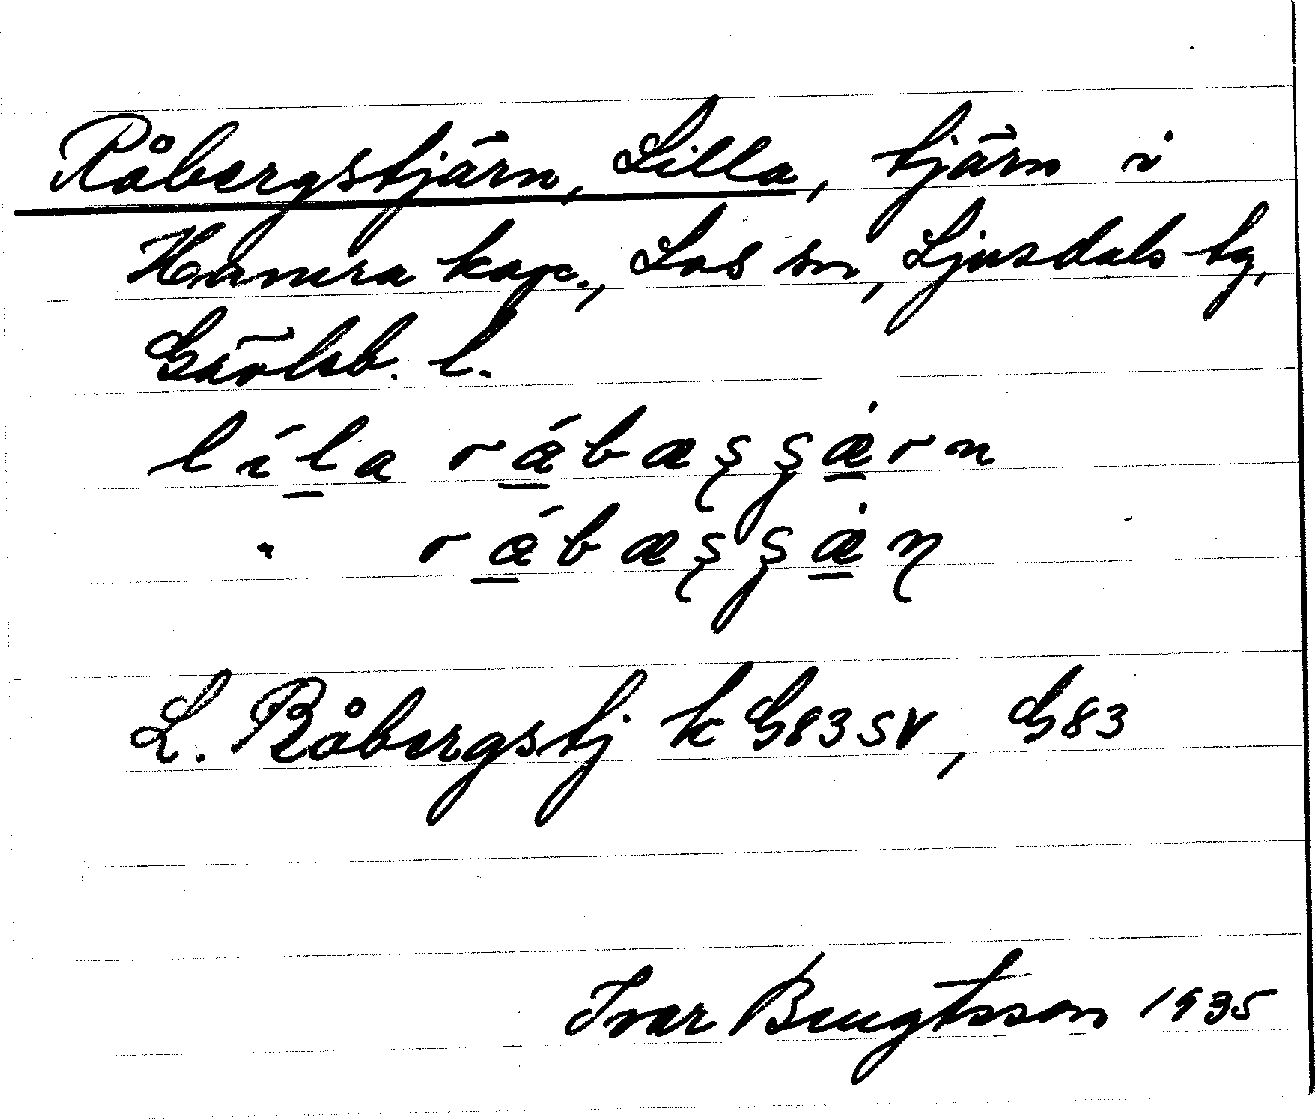 Råbergstjärn, Lilla, tjärn i
Hamra kap., Los sn, Ljusdals tg,
Gävleb. l.
líl̲a rǽ̲bæʂʂæ̲̇rn
" rǽ̲bæʂʂæ̲̇ɳ
L. Råbergstj k G83SV, G83
Ivar Bengtsson 1935